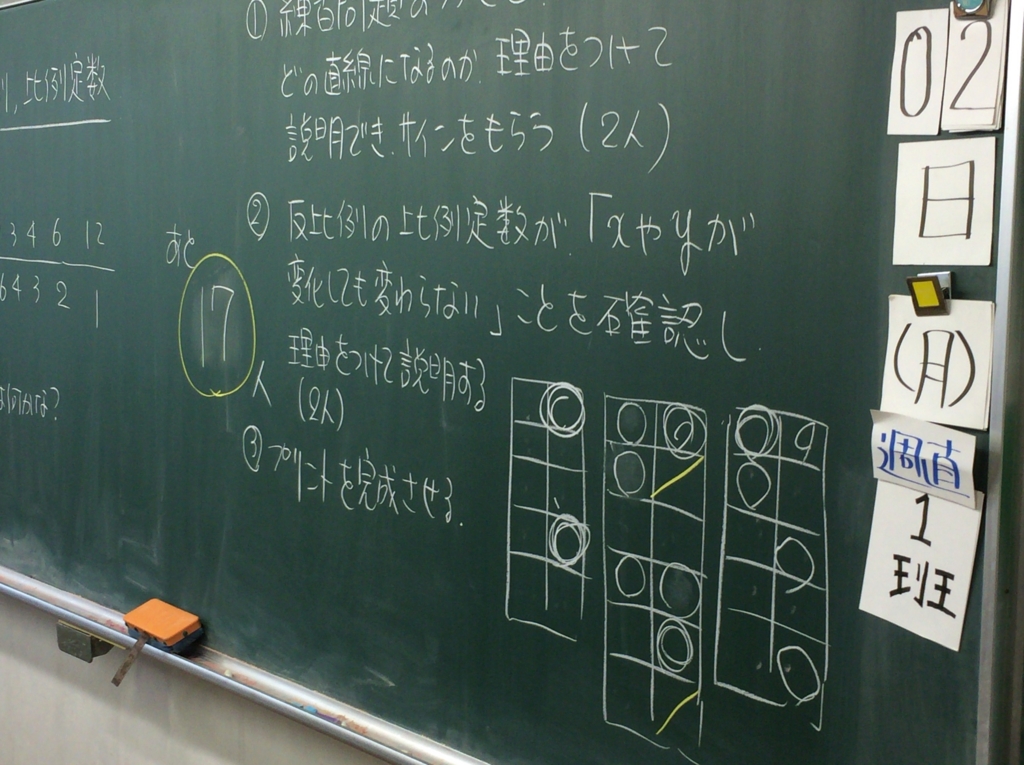 比例定数
3 4 6 12
6 4 3 2 1
あと
17
人
① 練習問題
どの直線になるのか、理由をつけて
説明でき、サインをもらう (2人)
② 反比例の比例定数が、「xやyが
変化しても変わらない」ことを確認し、
理由をつけて説明する
(2人)
③ プリントを完成させる。
02
日
(月)
週直
1
班